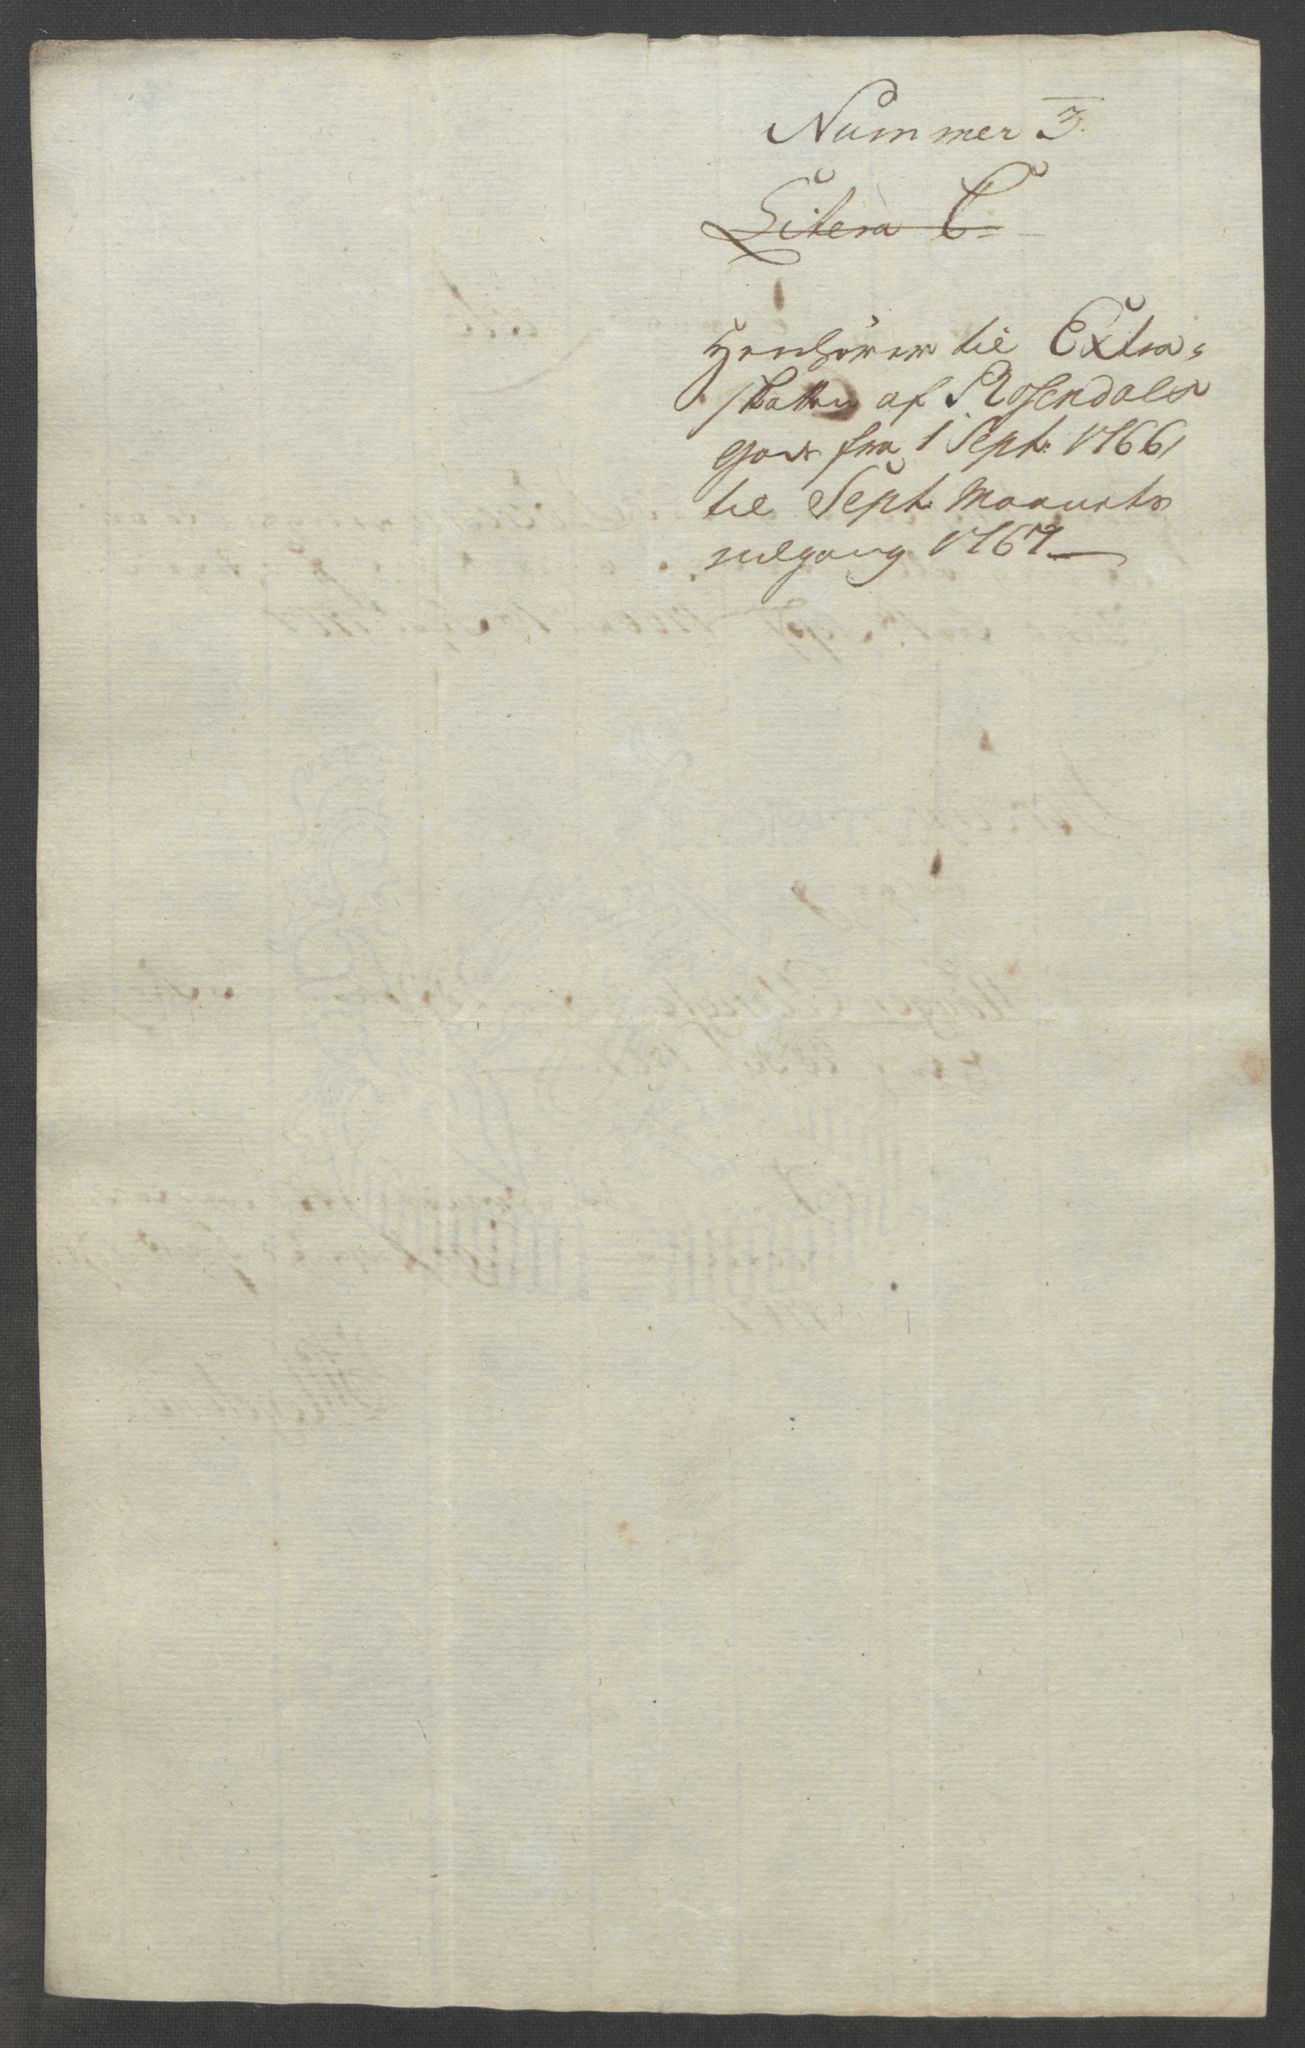 Nummer 3.
Litera C
Henhörer til Extra-
skatten af Rosendals
Gods fra 1 Sept: 1766
til Sept. Maanets
udgang 1767